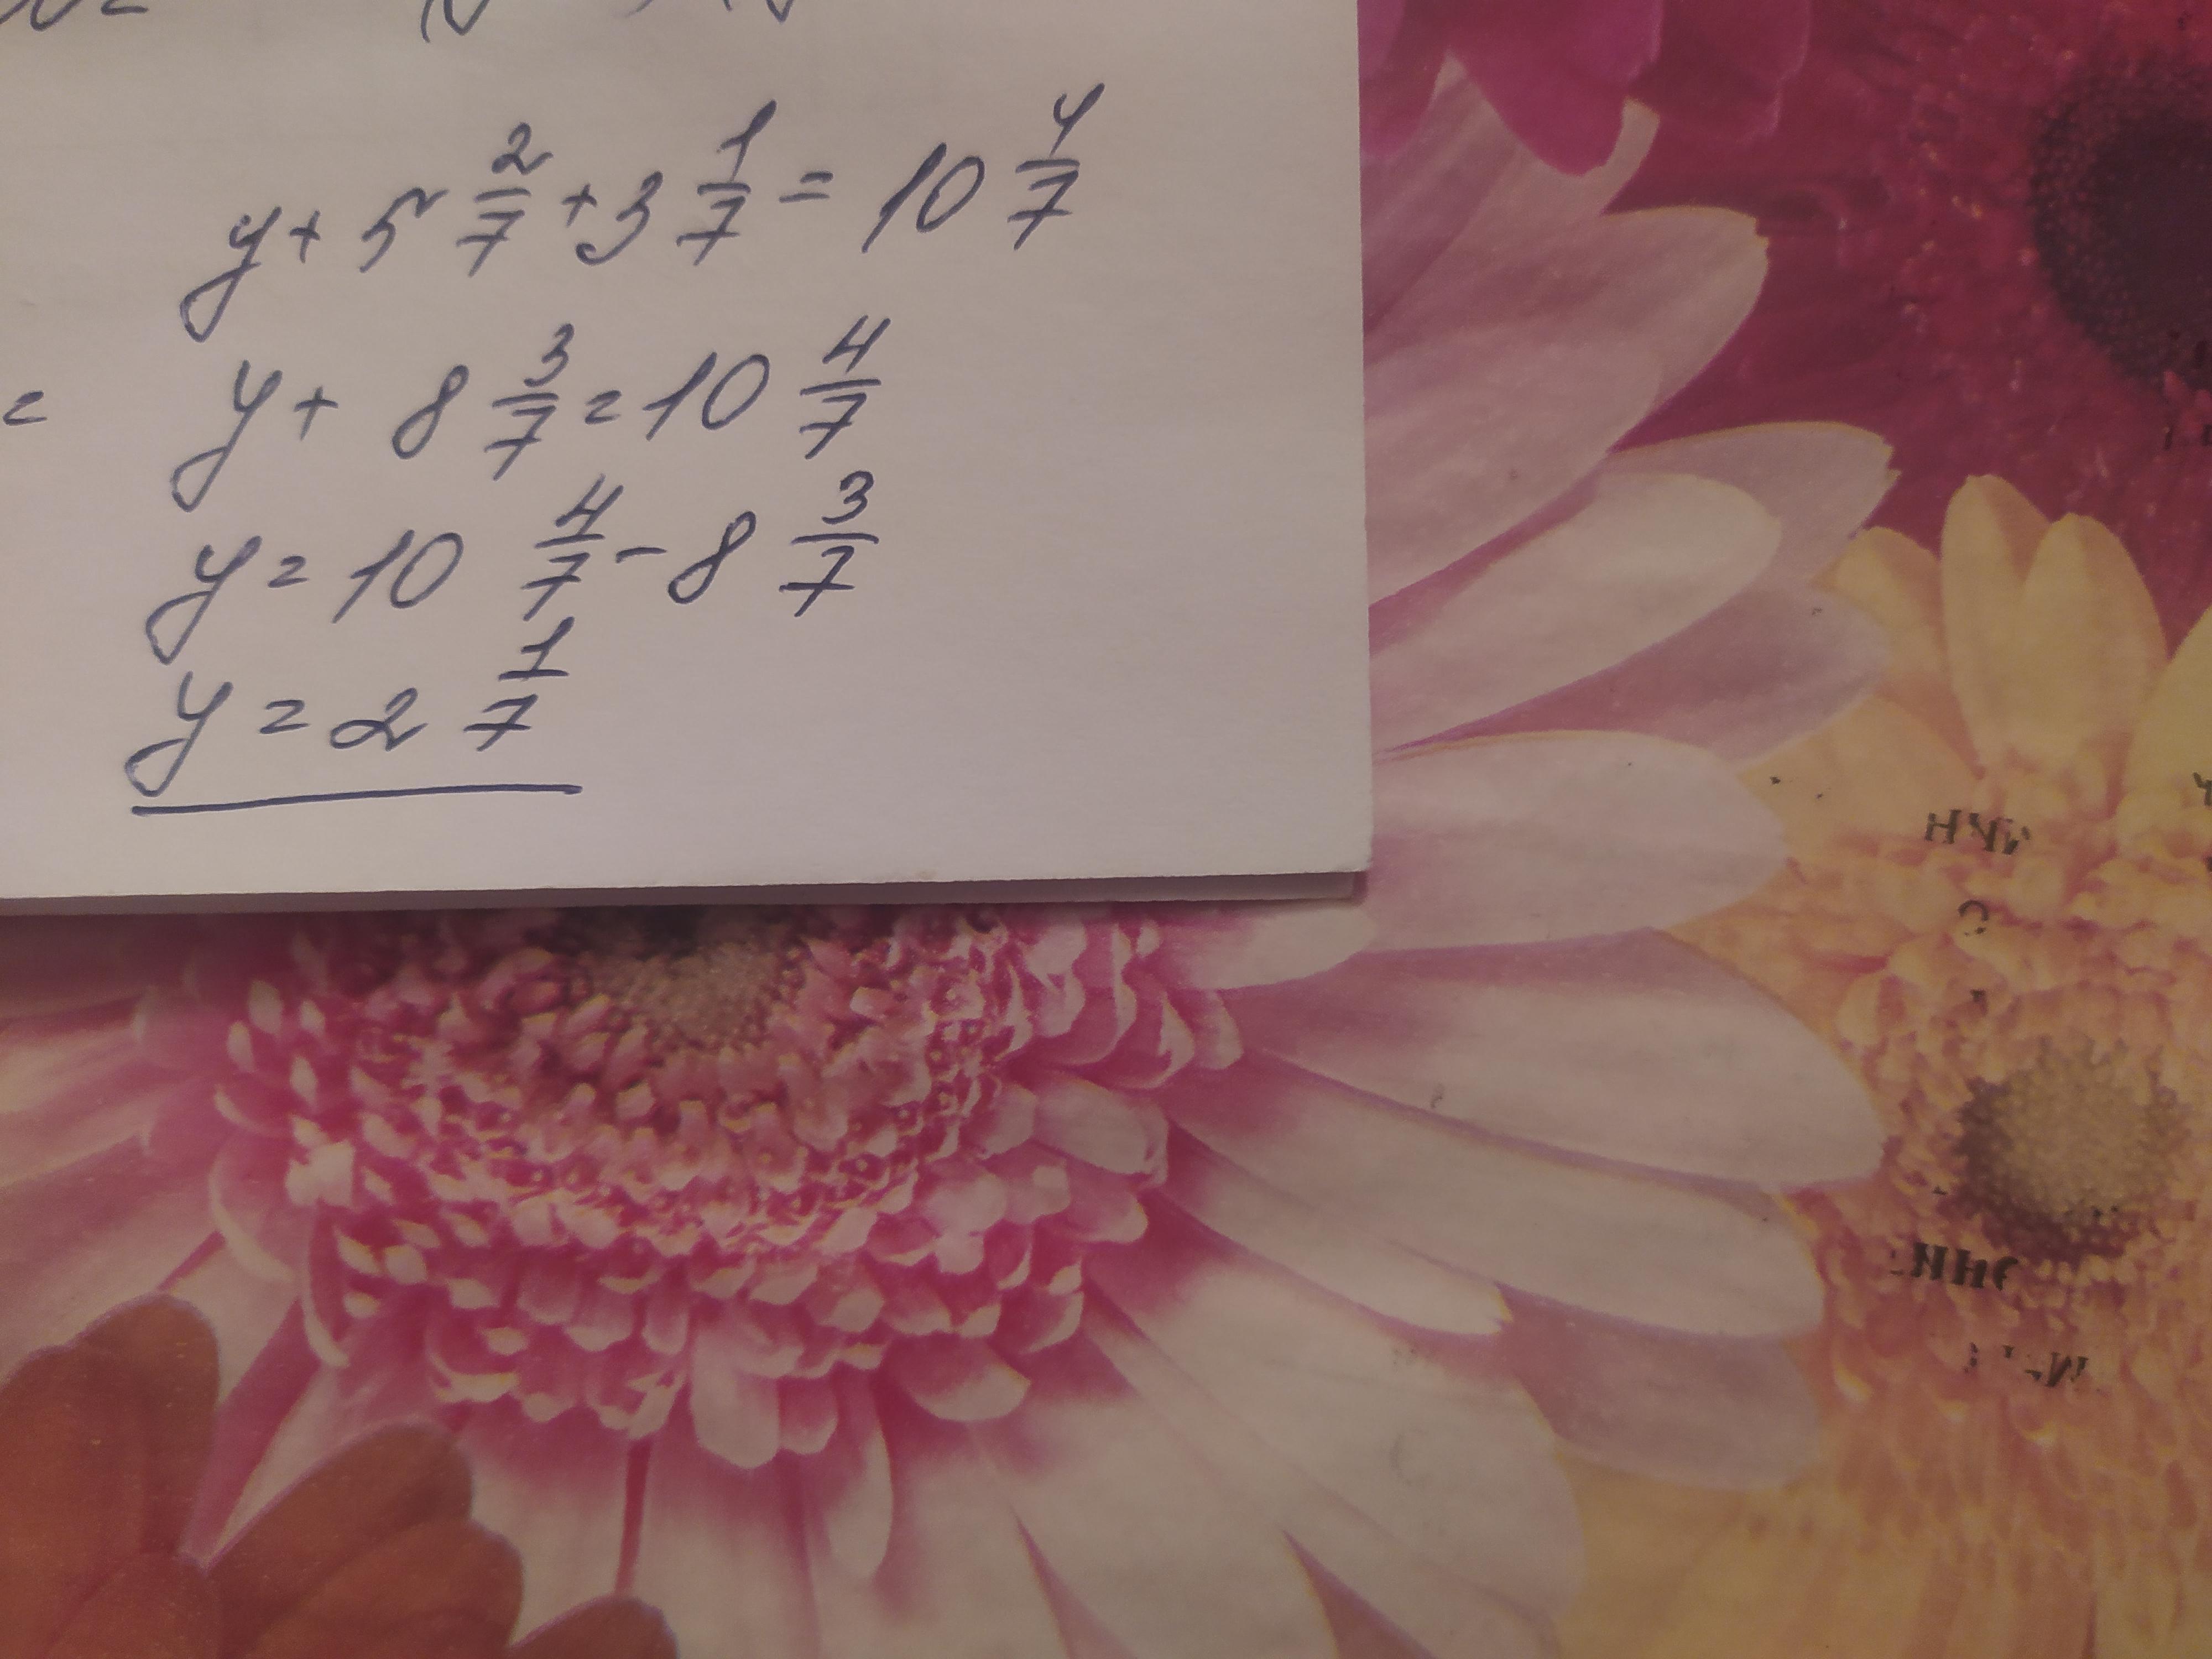 y + 5 2/7 + 3 1/7 = 10 4/7
= y + 8 3/7 = 10 4/7
y = 10 4/7 - 8 3/7
y = 2 1/7